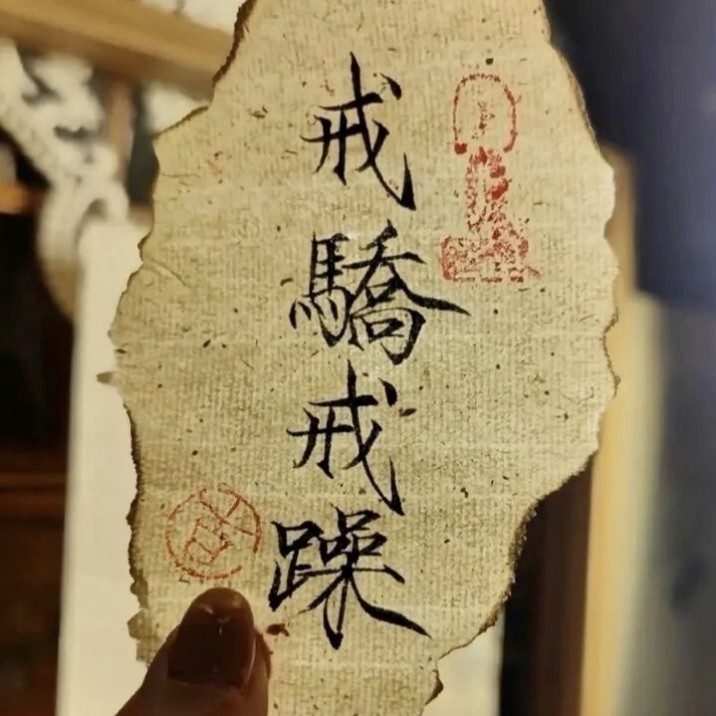 戒驕戒躁